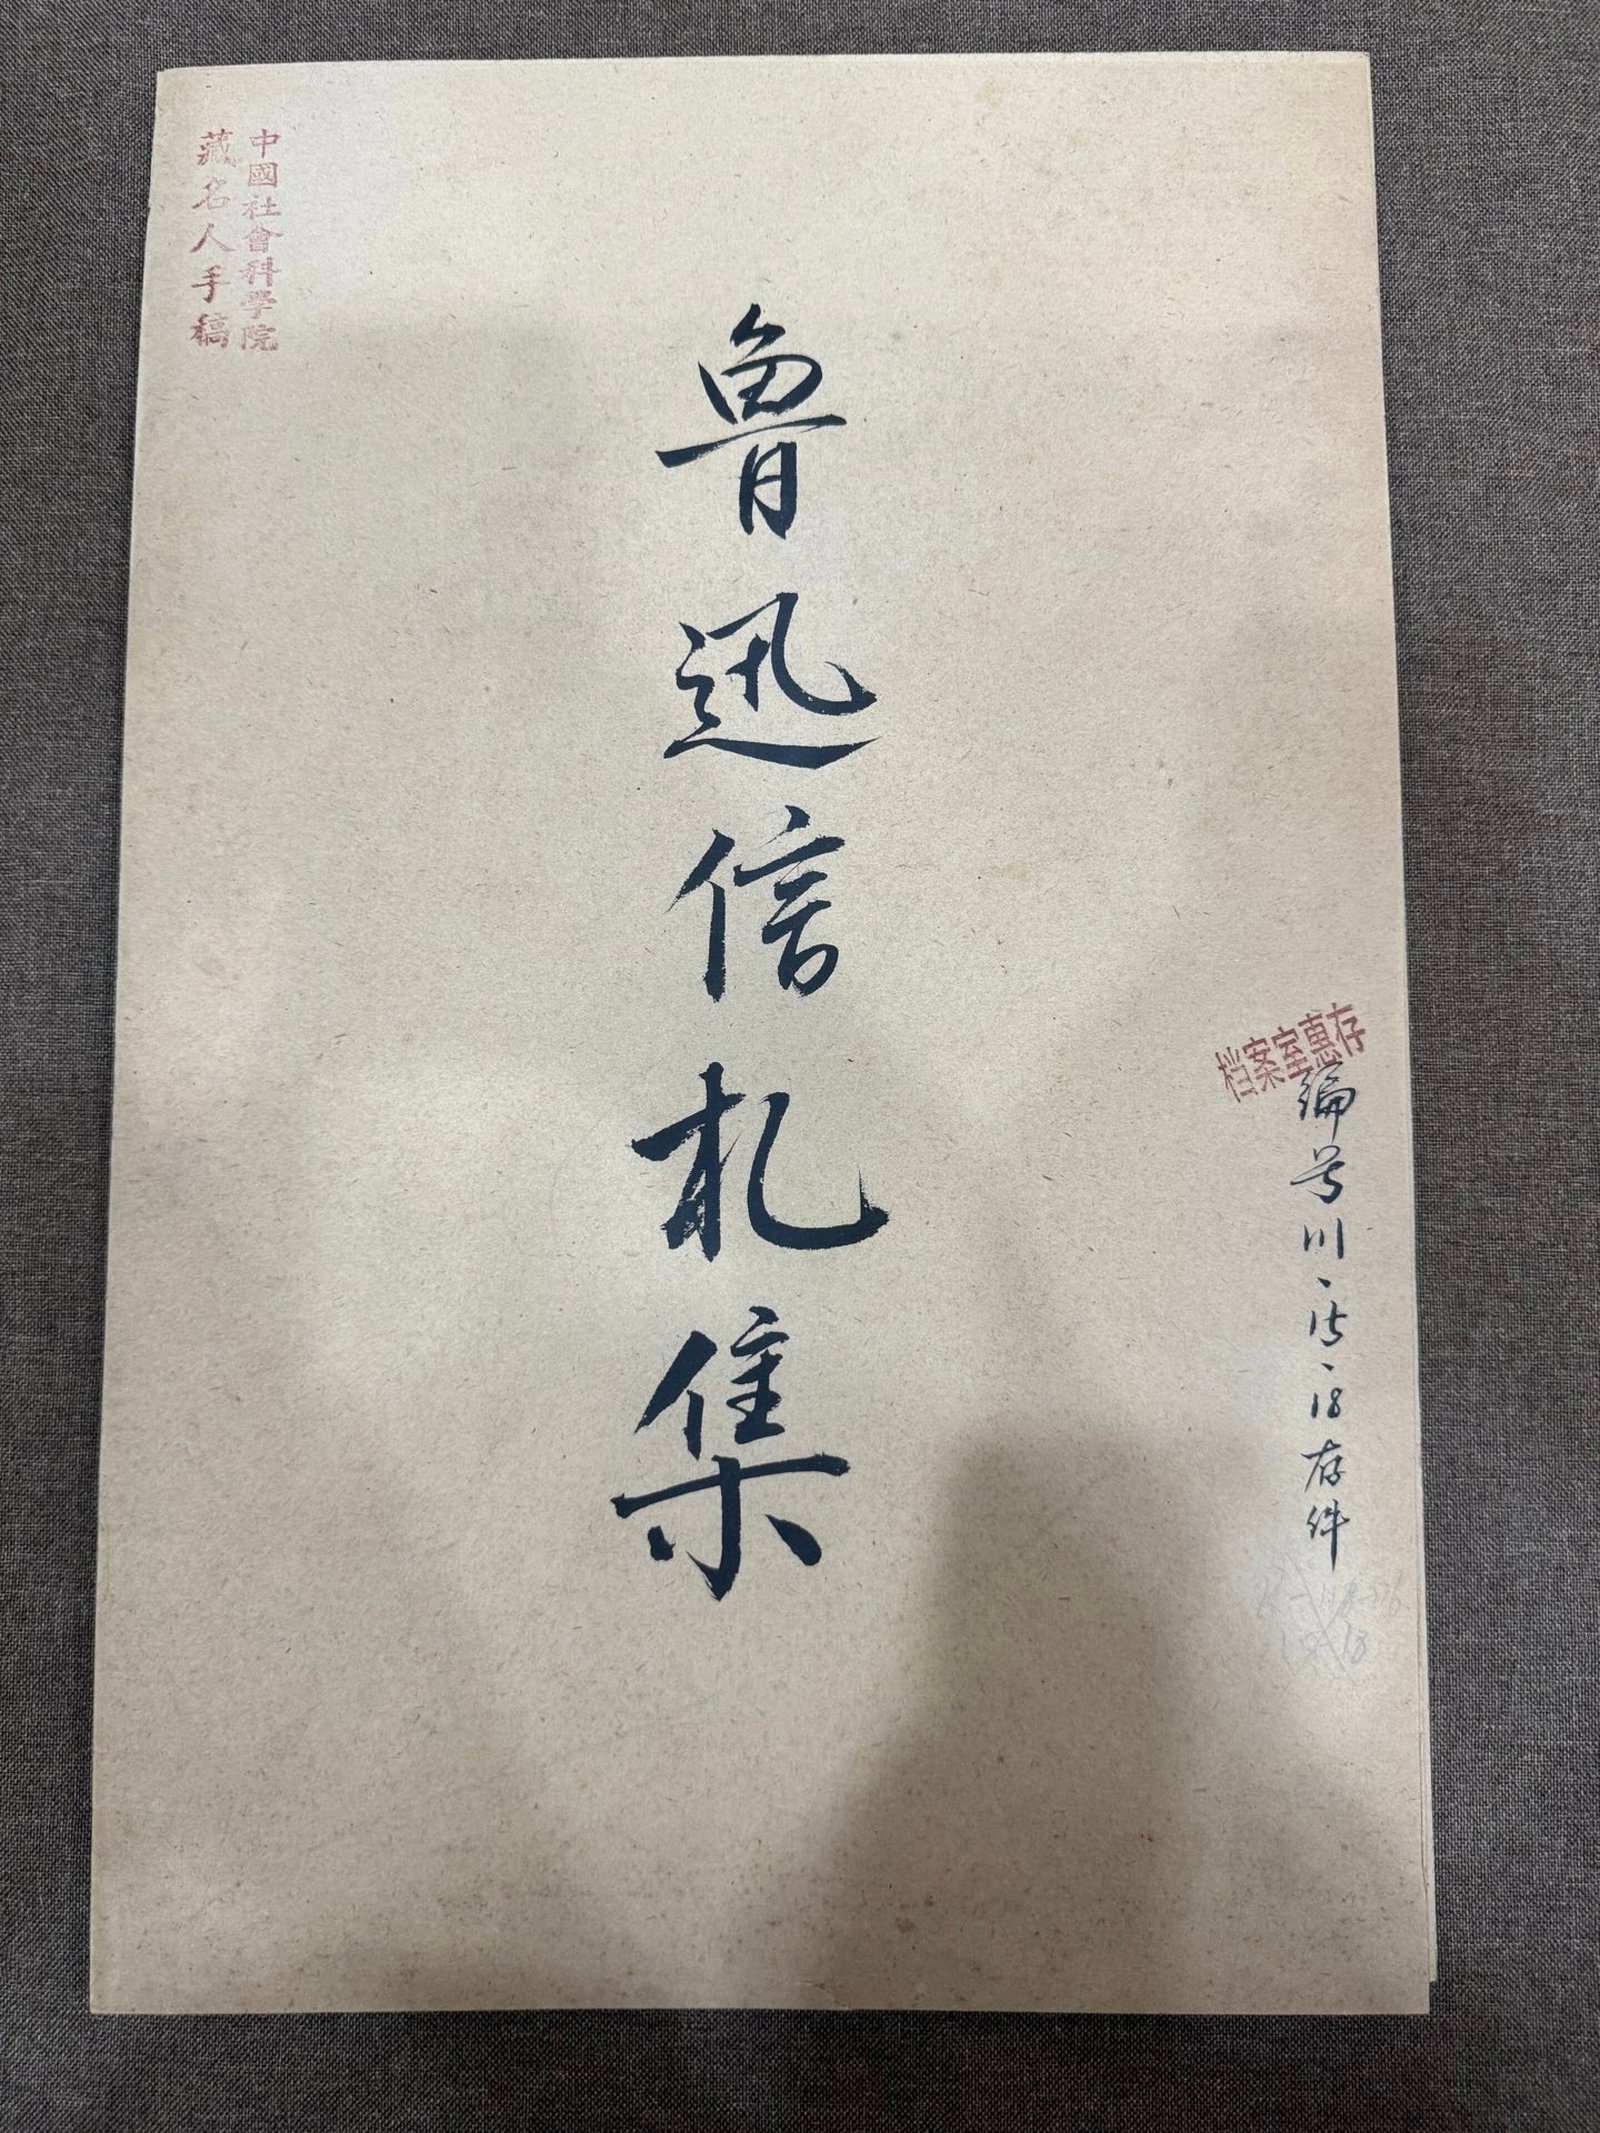 中國社會科學院
藏名人手稿
魯迅信札集
档案室惠存
编号川、
18存件